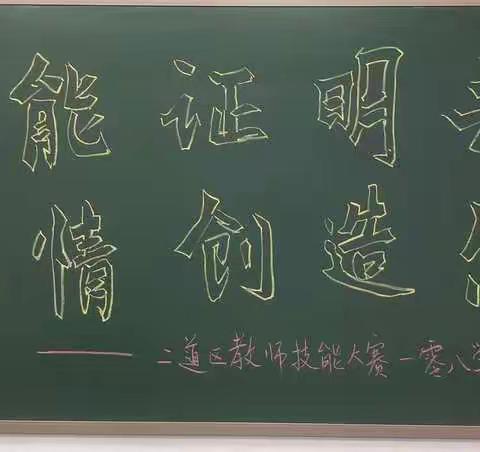 能证明
情创造
——二道区教师技能大赛一零八学